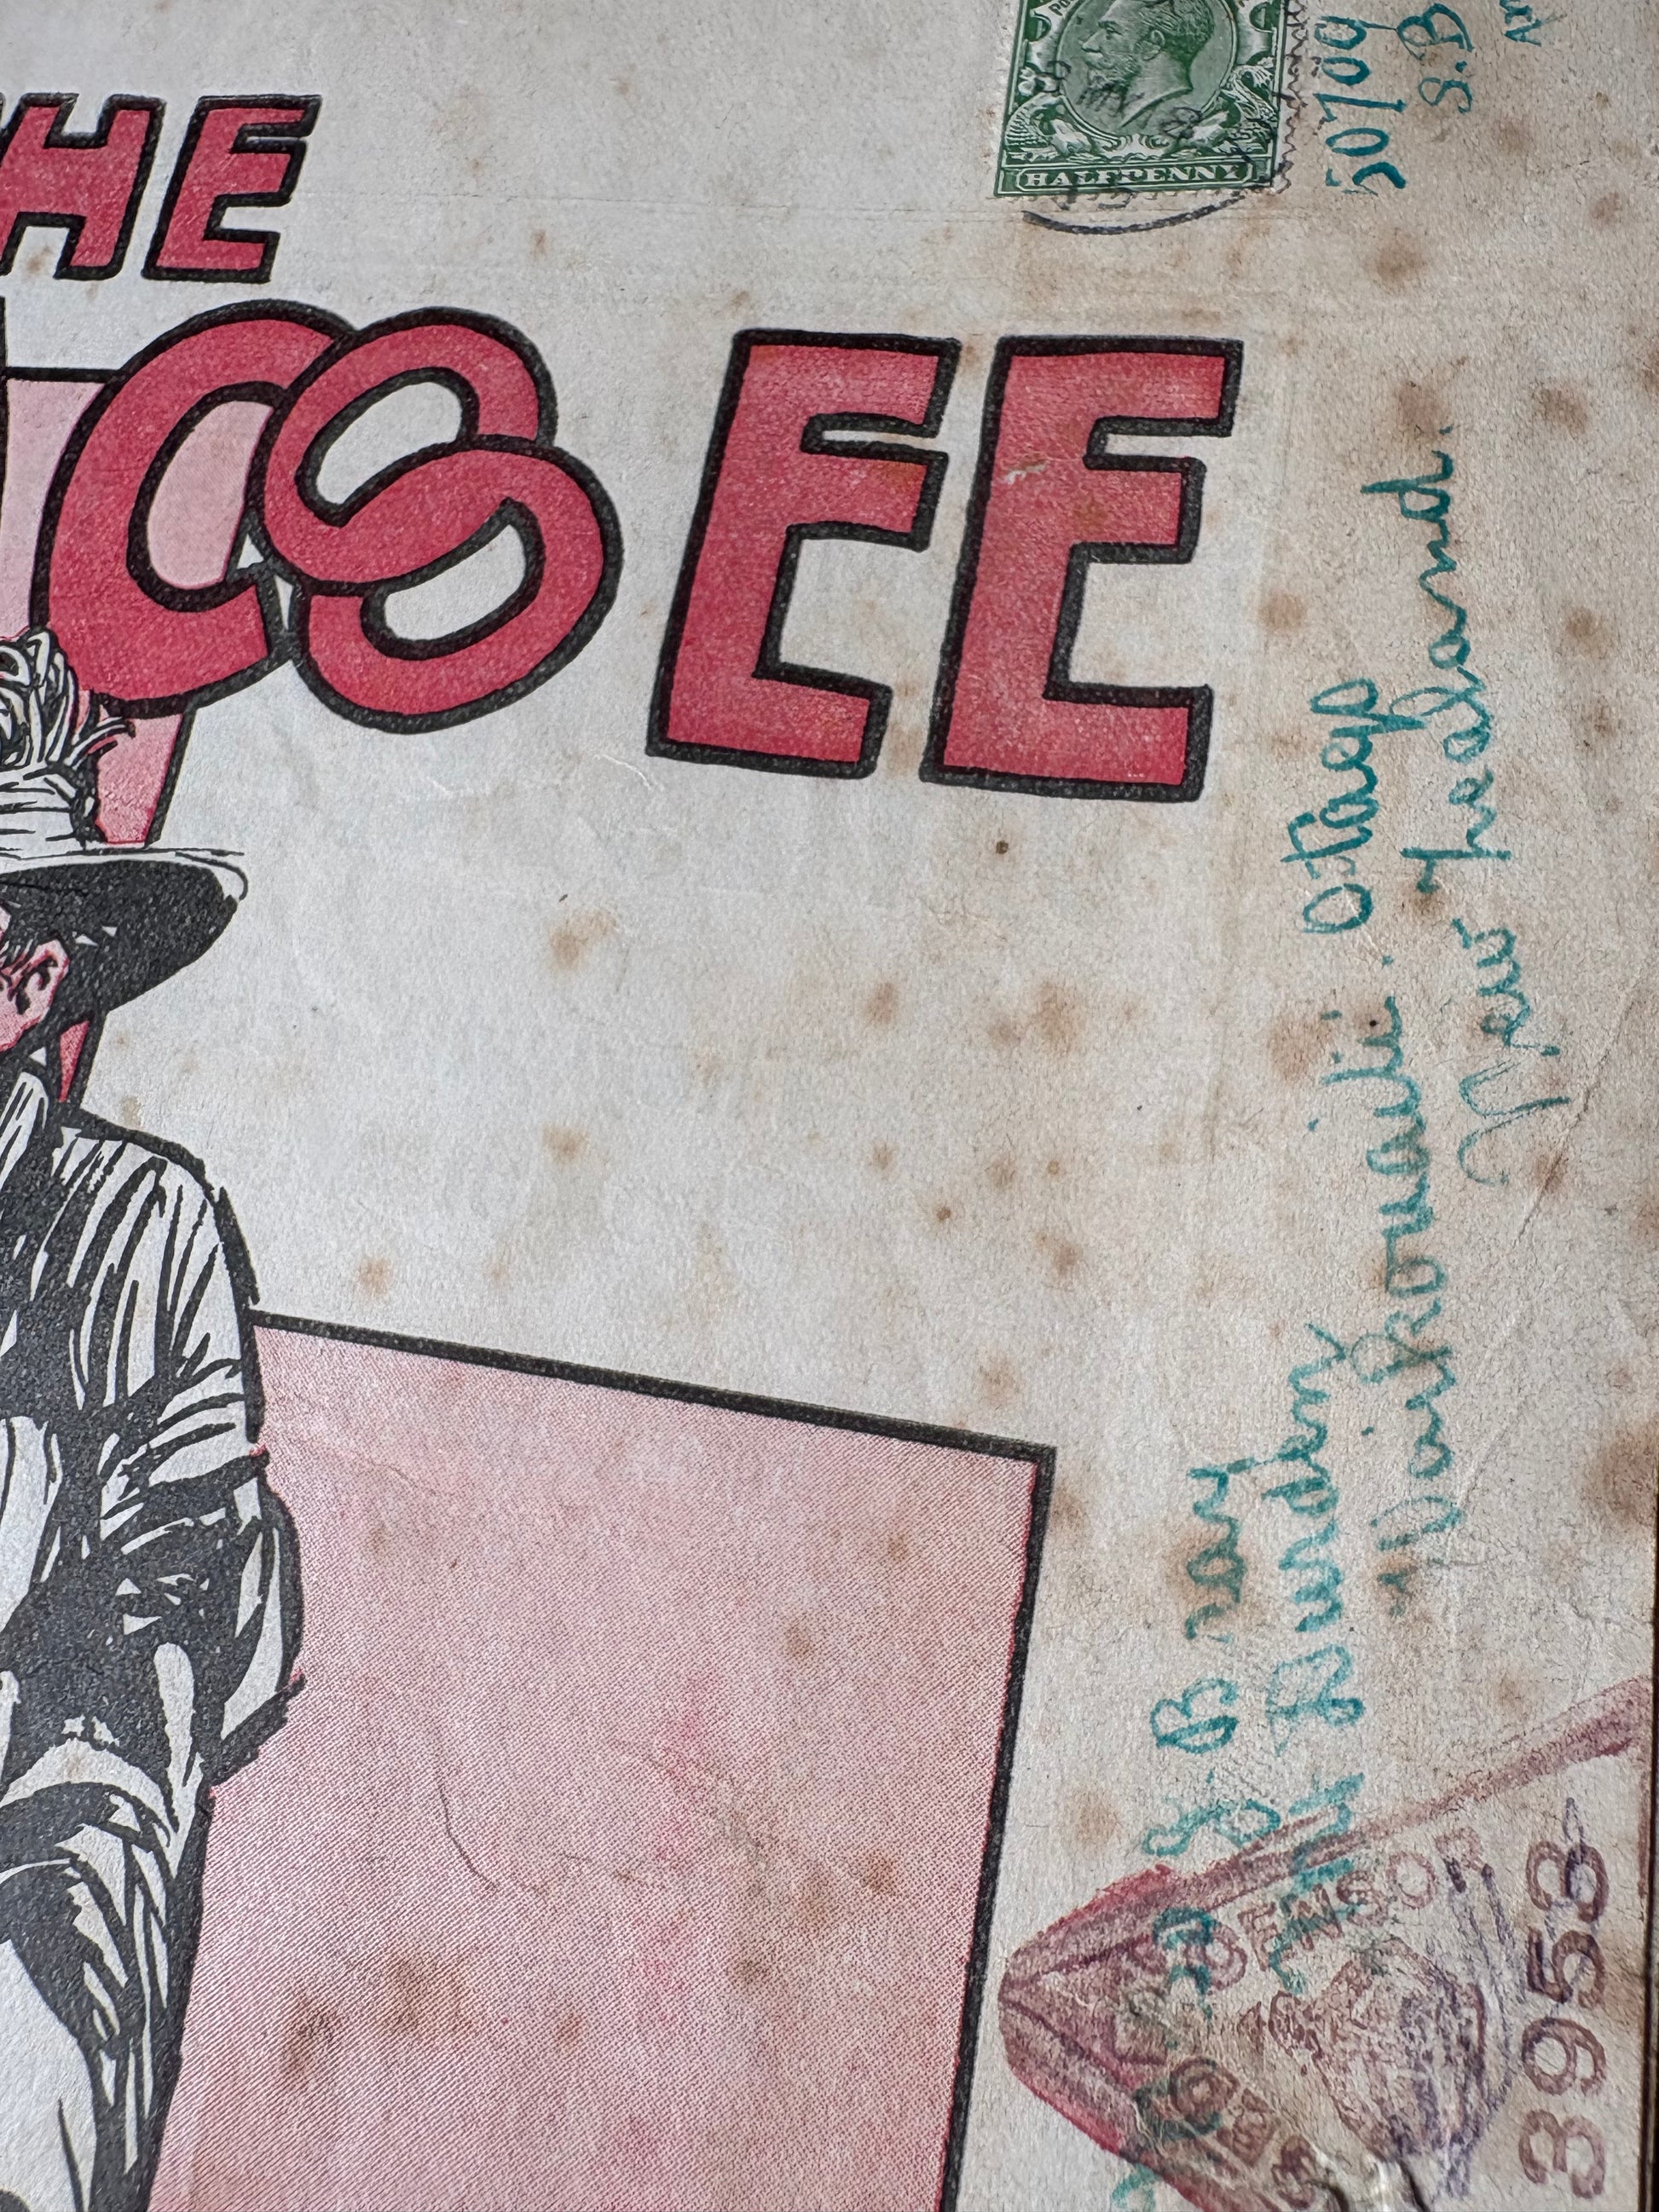 HE
COOEE
HALFPENNY
50709
S.B
Bray
"Waikouaiti. Otago
New Zealand.
CENSOR
3953